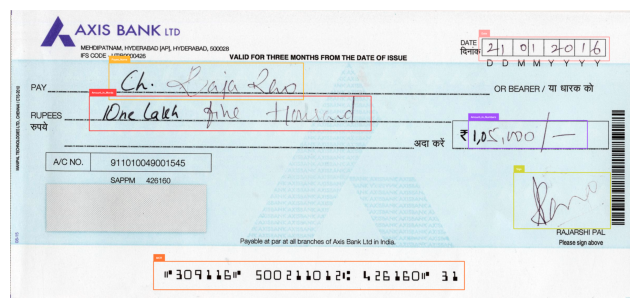 AXIS BANK LTD
MEHDIPATNAM, HYDERABAD [AP], HYDERABAD, 500028
IFS CODE - UTIB0000425
VALID FOR THREE MONTHS FROM THE DATE OF ISSUE
DATE
दिनांक
2 1 0 1 2 0 1 6
D D M M Y Y Y Y
PAY Ch. Raja Rao OR BEARER / या धारक को
RUPEES One Lakh five thousand
रुपये
अदा करें ₹ 1,05,000/-
A/C NO. 911010049001545
SAPPM 426160
RAJARSHI PAL
Payable at par at all branches of Axis Bank Ltd in India.
Please sign above
⑈309116⑈ 500211012⑆ 426160⑈ 31